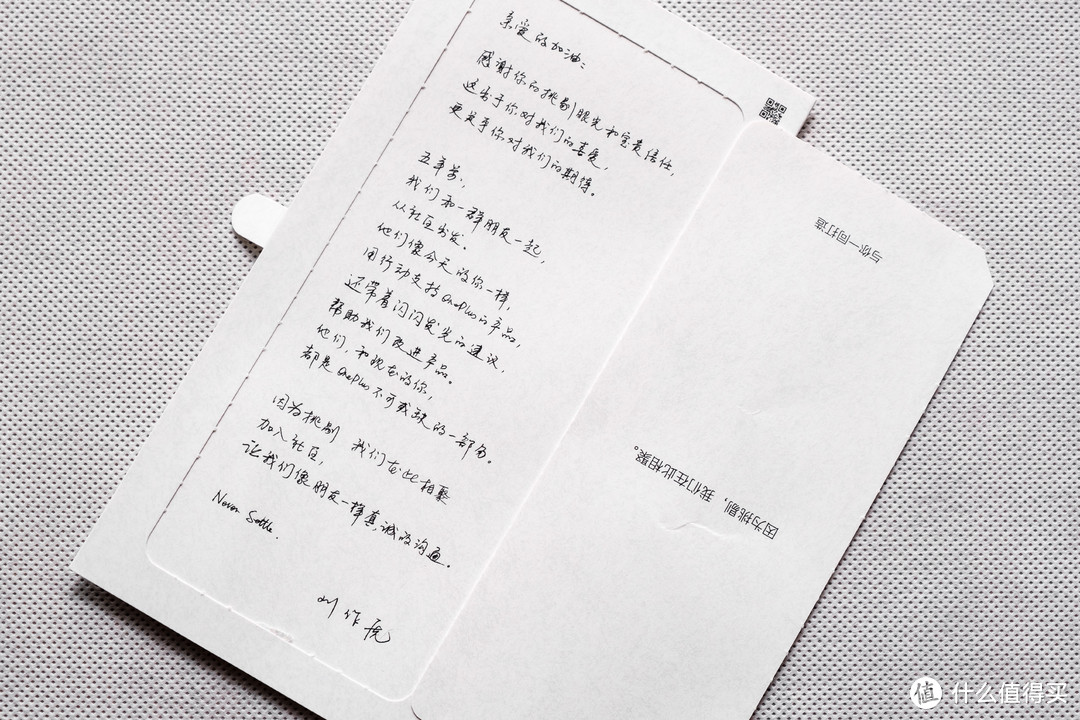 亲爱的加油：
感谢你的挑剔眼光和宝贵信任，
这出于你对我们的喜爱，
更关乎你对我们的期待。
五年前，
我们和一群朋友一起，
从社区出发。
他们像今天的你一样，
用行动支持OnePlus的产品，
还带着闪闪发光的建议，
帮助我们改进产品。
他们，和现在的你，
都是OnePlus不可或缺的一部分。
因为挑剔 我们在此相聚
加入社区，
让我们像朋友一样真诚的沟通。
Never Settle.
刘作虎
与你一同打造
因为挑剔，我们在此相聚。
值 什么值得买